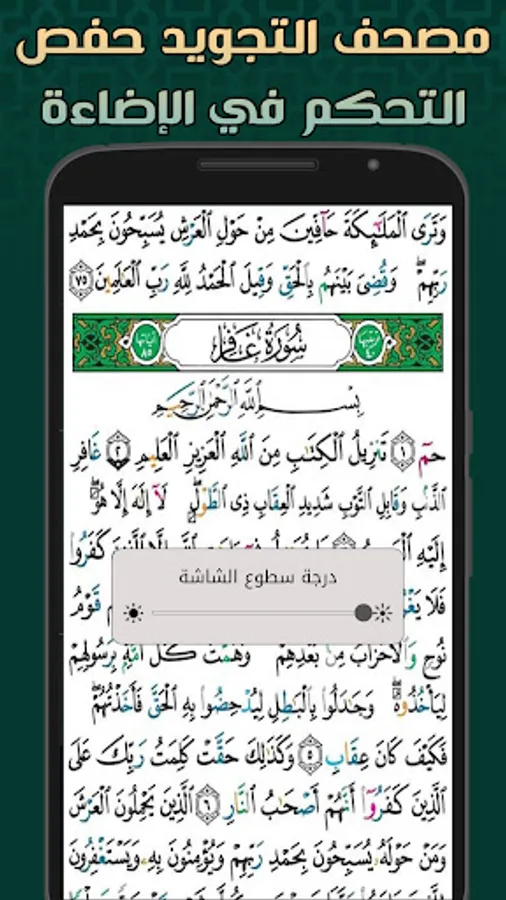 مصحف التجويد حفص
التحكم في الإضاءة
وَتَرَى الْمَلَٰٓئِكَةَ حَآفِّينَ مِنْ حَوْلِ الْعَرْشِ يُسَبِّحُونَ بِحَمْدِ
رَبِّهِمْ ۖ وَقُضِىَ بَيْنَهُم بِالْحَقِّ وَقِيلَ الْحَمْدُ لِلَّهِ رَبِّ الْعَٰلَمِينَ ٧٥
ترتيبها ٤٠ سُورَةُ غَافِر آياتها ٨٥
بِسْمِ اللَّهِ الرَّحْمَٰنِ الرَّحِيمِ
حمٓ ١ تَنزِيلُ الْكِتَٰبِ مِنَ اللَّهِ الْعَزِيزِ الْعَلِيمِ ٢ غَافِرِ
الذَّنۢبِ وَقَابِلِ التَّوْبِ شَدِيدِ الْعِقَابِ ذِى الطَّوْلِ ۖ لَآ إِلَٰهَ إِلَّا هُوَ ۖ
إِلَيْهِ كَفَرُوا
فَلَا قَوْمُ
درجة سطوع الشاشة
نُوحٍ وَالْأَحْزَابُ مِنۢ بَعْدِهِمْ ۖ وَهَمَّتْ كُلُّ أُمَّةٍۭ بِرَسُولِهِمْ
لِيَأْخُذُوهُ ۖ وَجَٰدَلُوا بِالْبَٰطِلِ لِيُدْحِضُوا بِهِ الْحَقَّ فَأَخَذْتُهُمْ ۖ
فَكَيْفَ كَانَ عِقَابِ ٥ وَكَذَٰلِكَ حَقَّتْ كَلِمَتُ رَبِّكَ عَلَى
الَّذِينَ كَفَرُوٓا أَنَّهُمْ أَصْحَٰبُ النَّارِ ٦ الَّذِينَ يَحْمِلُونَ الْعَرْشَ
وَمَنْ حَوْلَهُۥ يُسَبِّحُونَ بِحَمْدِ رَبِّهِمْ وَيُؤْمِنُونَ بِهِۦ وَيَسْتَغْفِرُونَ